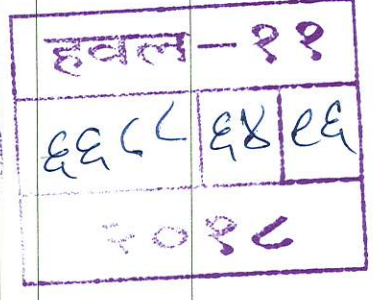 हवल-११
६६८८ ६४ ९६
२०१८